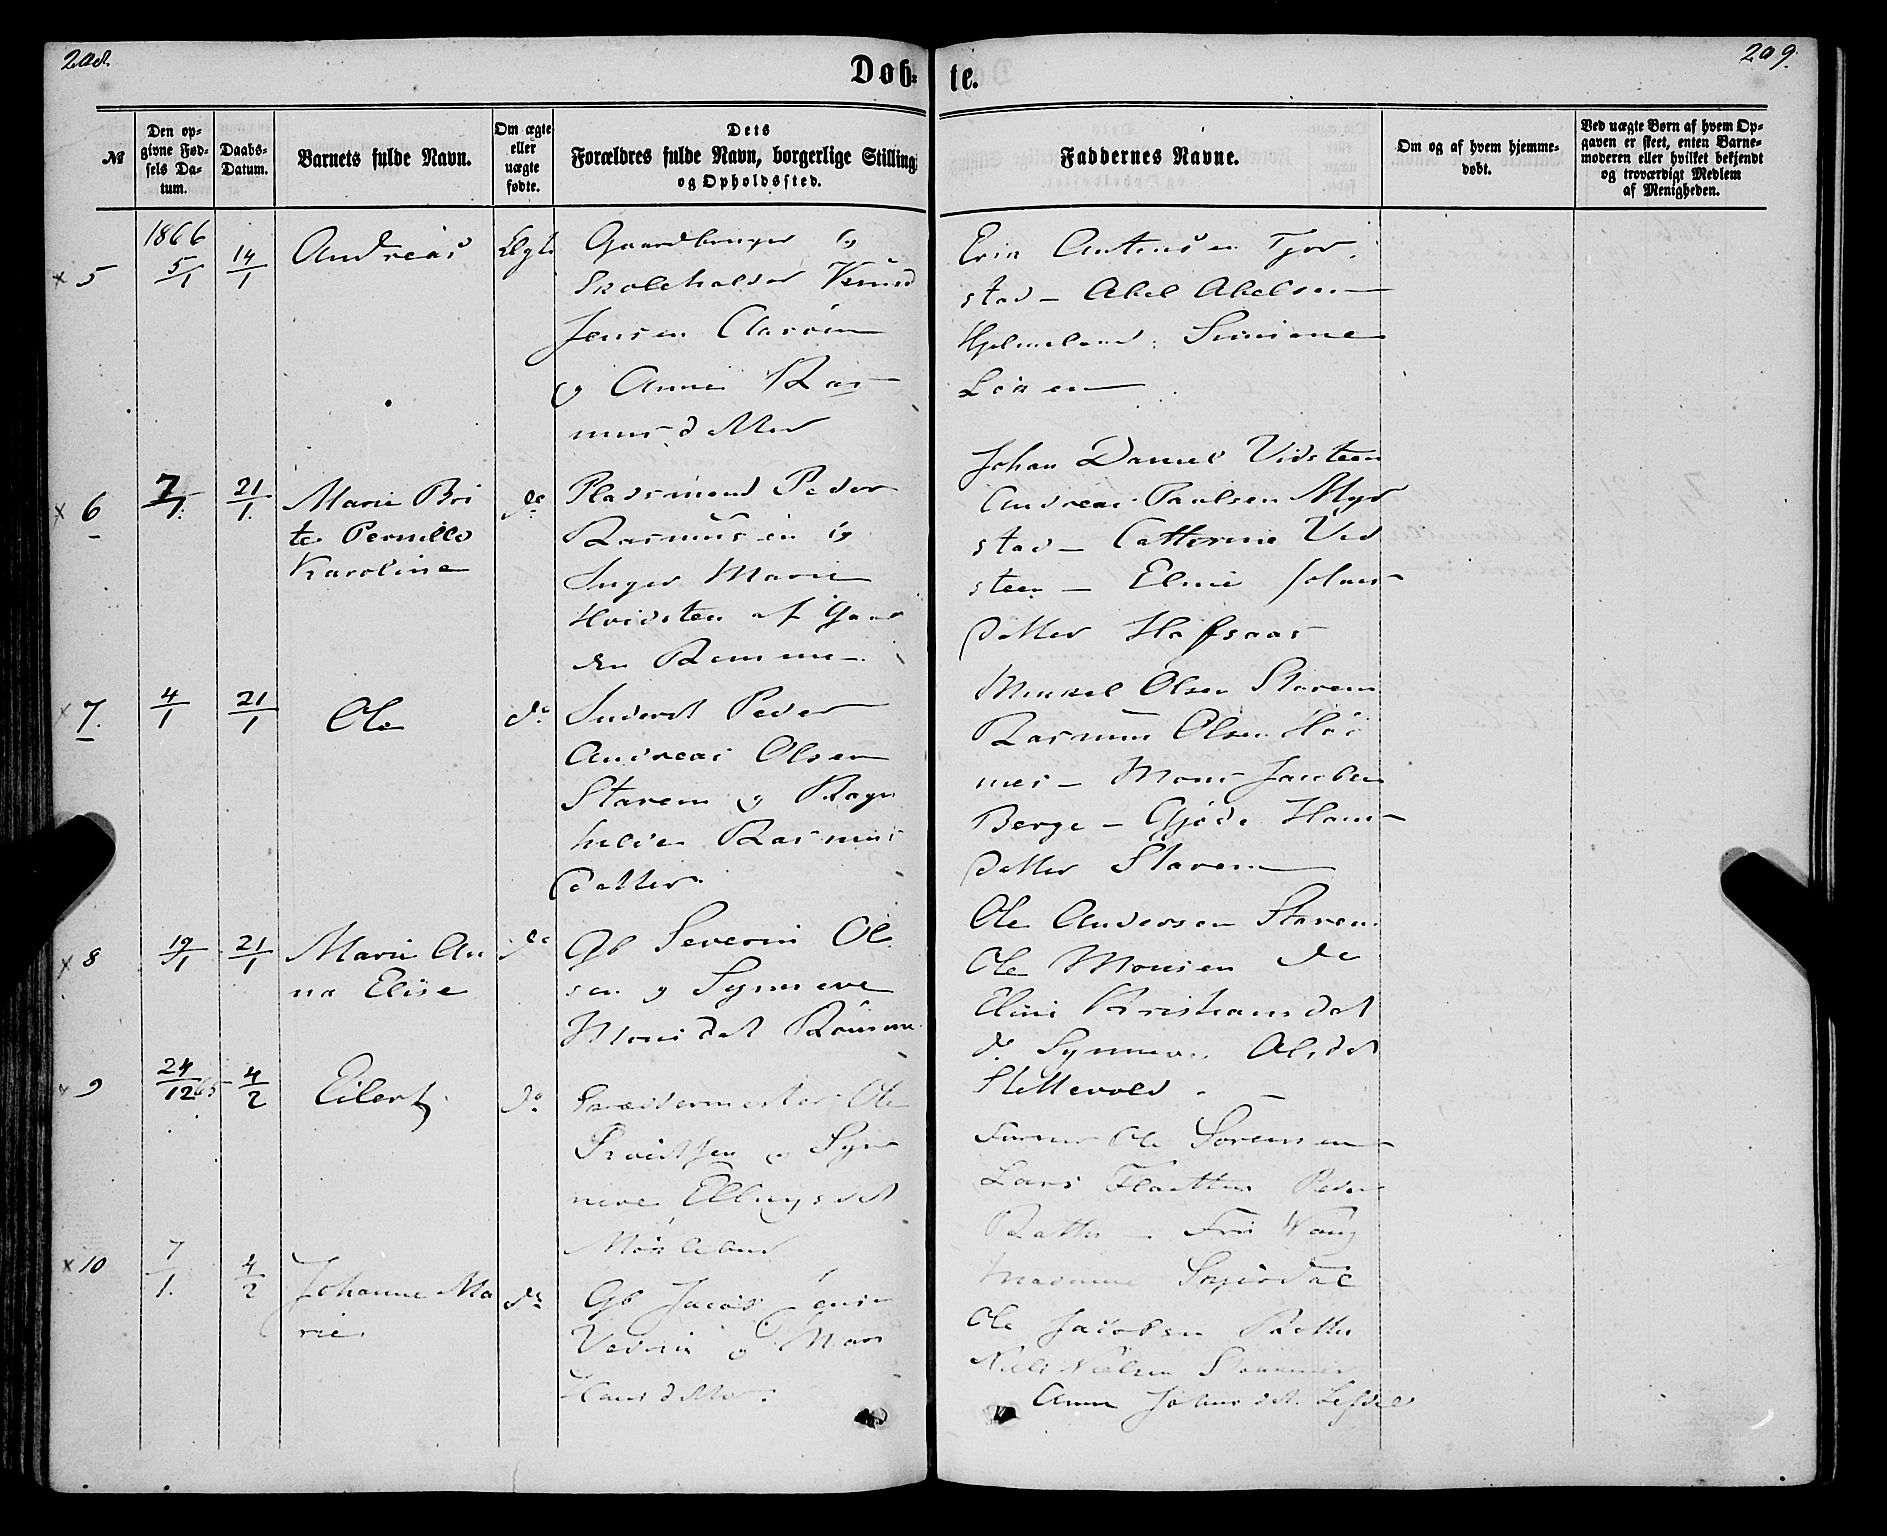 208.
209.
Døb-
te.
№
Den op-
givne Fød-
sels Da-
tum.
Daabs-
Datum.
Barnets fulde Navn.
Om ægte
eller
uægte
fødte.
Dets
Forældres fulde Navn, borgerlige Stilling
og Opholdssted.
Faddernes Navne.
Om og af hvem hjemme-
døbt.
Ved uægte Børn af hvem Op-
gaven er skeet, enten Barne-
moderen eller hvilket bekjendt
og troværdigt Medlem
af Menigheden.
1866
x 5
5/1
14/1
Andreas
Ægte
Gaardbruger og
Skoleholder Knud
Jensen
og Anne Ras
musdatter
Abel Abelsen
Hjelmeland Simone
x 6
7/1.
21/1.
Marie Bri
te Pernille
Karoline
do
Pladsmand Peder
Rasmussen og
Inger Marie
Hvidsten af Gaar
den Remme
Johan Daniel Vidsteen
Andreas Paulsen Myr
stad - Cathrine Vid
steen - Eline Johans
datter Hafsaas
x 7.
4/1
21/1
Ole
do
Inderst Peder
Andreas Olsen
Starem og Ragn
hilde Rasmus
datter.
Mikkel Olsen Starem
Rasmus Olsen Høi
nes - Mons Jacobsen
Berge - Gjøde Hans
datter Starem
x 8
19/1
21/1
Marie An
na Elise
do
Gb Severin Ol
sen og Synneve
Monsdat
Ole Andersen Starem
Ole Monsen do
Eline Kristiansdat
do Synneve Olsdat
Slettevold.
x 9
24/12 65
4/2
Eilert
do
Skræddermester Ole
og Syn
neve Ellingsdat
Ole Sørensen
Lars Peder
x 10
7/1.
4/2
Johanne Ma
rie
do
Gb Jacob Jensen
og Mari
Hansdatter.
Ole Jacobsen
Niels Nielsen
Anne Johansdat.